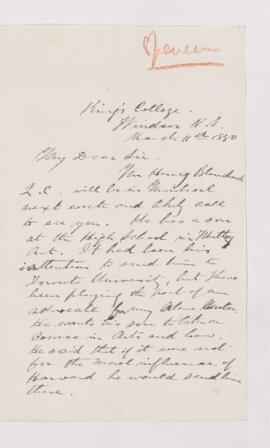 King's College.
Windsor N.S.
March 11th 1890
My Dear Sir.
Mr Henry Blanchard
Q.C. will be in Montreal
next week and likely call
to see you. He has a son
at the High School in Whitby
Ont. It had been his
intention to send him to
Toronto University, but I have
been playing the part of an
advocate for my Alma Mater
He wants his son to take a
Course in Arts and Law.
He said that if it were not
for the moral influence of
Harvard he would send him
there.